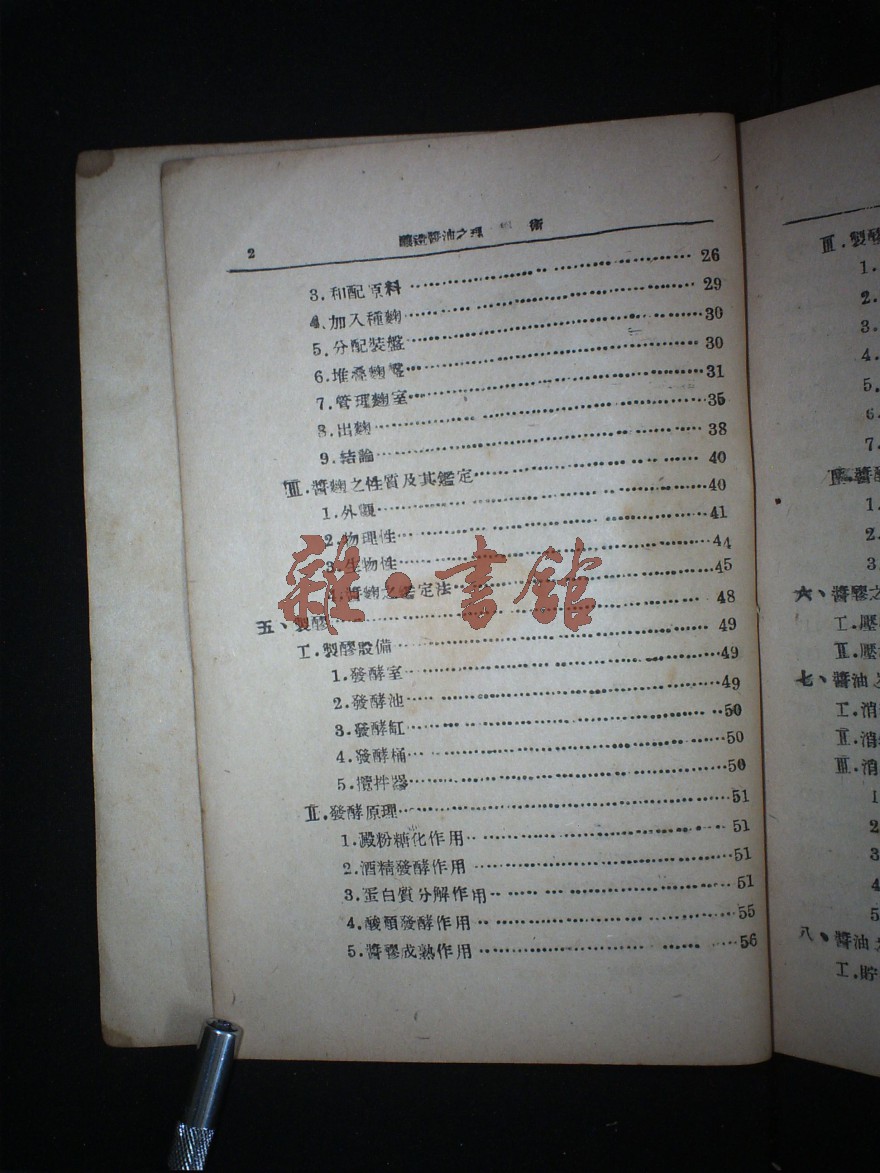 2
釀造醬油之理 術
3.和配原料 26
4.加入種麴 29
5.分配裝盤 30
6.堆叠麴 30
7.管理麴室 31
8.出麴 35
9.結論 38
Ⅲ.醬麴之性質及其鑑定 40
1.外觀 40
2.物理性 41
3.生物性 44
4.醬麴之鑑定法 45
五、製醪 48
Ⅰ.製醪設備 49
1.發酵室 49
2.發酵池 49
3.發酵缸 50
4.發酵桶 50
5.攪拌器 50
Ⅱ.發酵原理 51
1.澱粉糖化作用 51
2.酒精發酵作用 51
3.蛋白質分解作用 51
4.酸類發酵作用 55
5.醬醪成熟作用 56
雜·書館
Ⅲ.製醪
1.
2.
3.
4.
5.
6.
7.
醬
1.
2.
3
六、醬醪之
Ⅰ.壓
Ⅱ.壓
七、醬油之
Ⅰ.消
Ⅱ.消
Ⅲ.消
1
2
3
4
5
八、醬油之
Ⅰ.貯